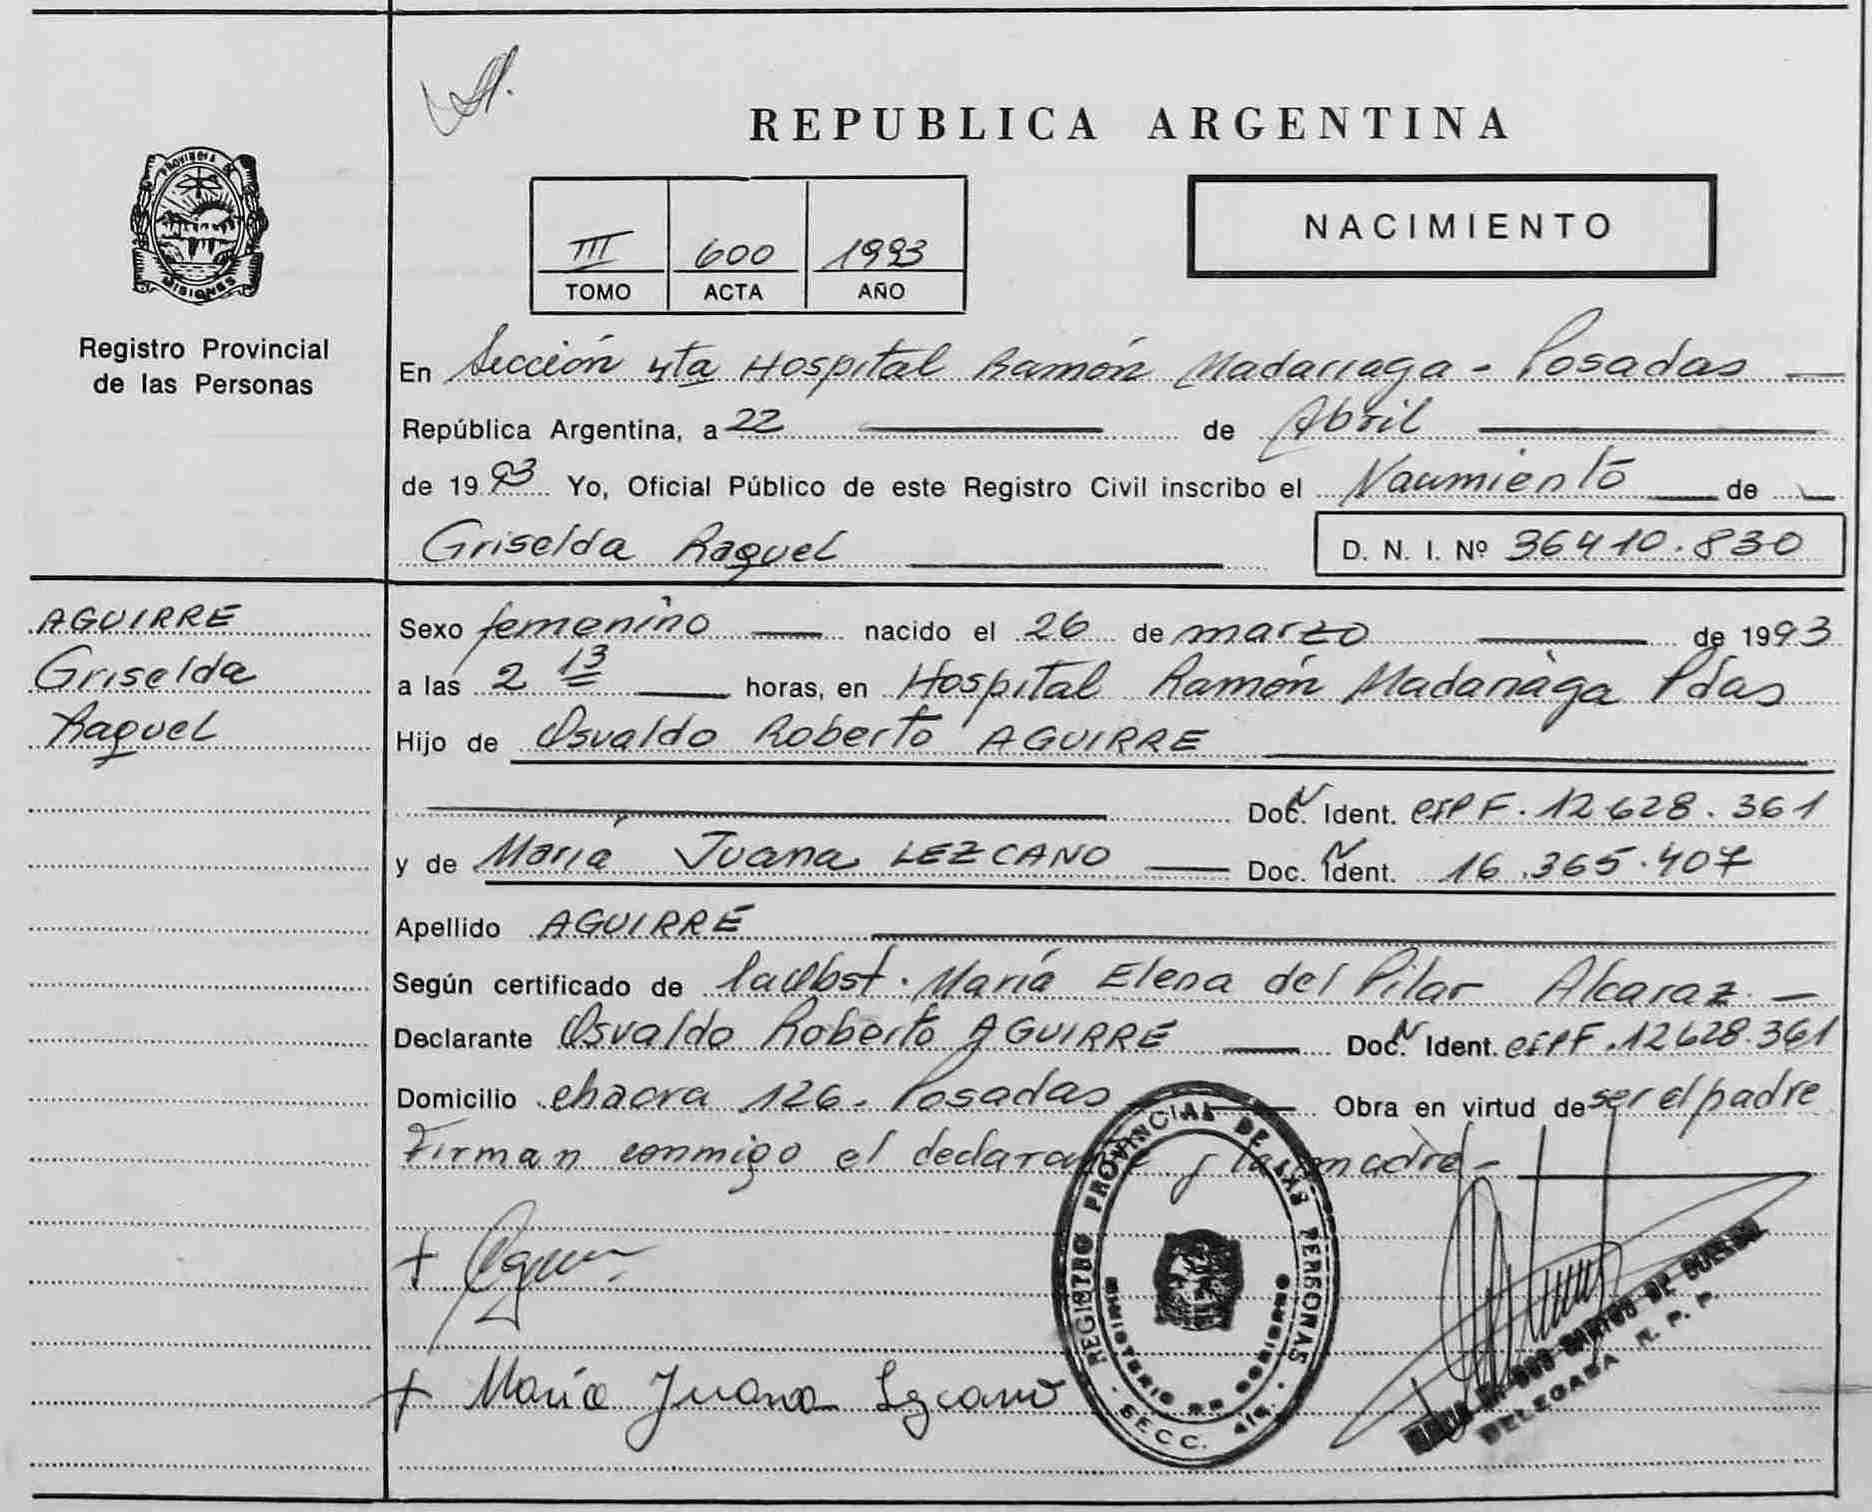 REPUBLICA ARGENTINA
PROVINCIA DE
MISIONES
Registro Provincial
de las Personas
III 600 1993
TOMO ACTA AÑO
NACIMIENTO
En Sección 4ta Hospital Ramón Madariaga - Posadas —
República Argentina, a 22 de Abril
de 1993 Yo, Oficial Público de este Registro Civil inscribo el Nacimiento de
Griselda Raquel D. N. I. Nº 36410.830
AGUIRRE
Griselda
Raquel
Sexo femenino nacido el 26 de marzo de 1993
a las 2 13 horas, en Hospital Ramón Madariaga Pdas
Hijo de Osvaldo Roberto AGUIRRE
Doc. Ident. 12.628.361
y de María Juana LEZCANO Doc. Ident. 16.365.407
Apellido AGUIRRE
Según certificado de la Obst. María Elena del Pilar Alcaraz.-
Declarante Osvaldo Roberto AGUIRRE Doc. Ident. 12.628.361
Domicilio chacra 126. Posadas Obra en virtud de ser el padre
Firman conmigo el declarante y la madre-
+
+ María Juana Lezcano
REGISTRO PROVINCIAL DE LAS PERSONAS
MINISTERIO DE GOBIERNO
SECC. 4ta.
DELEGADA R. P. P.